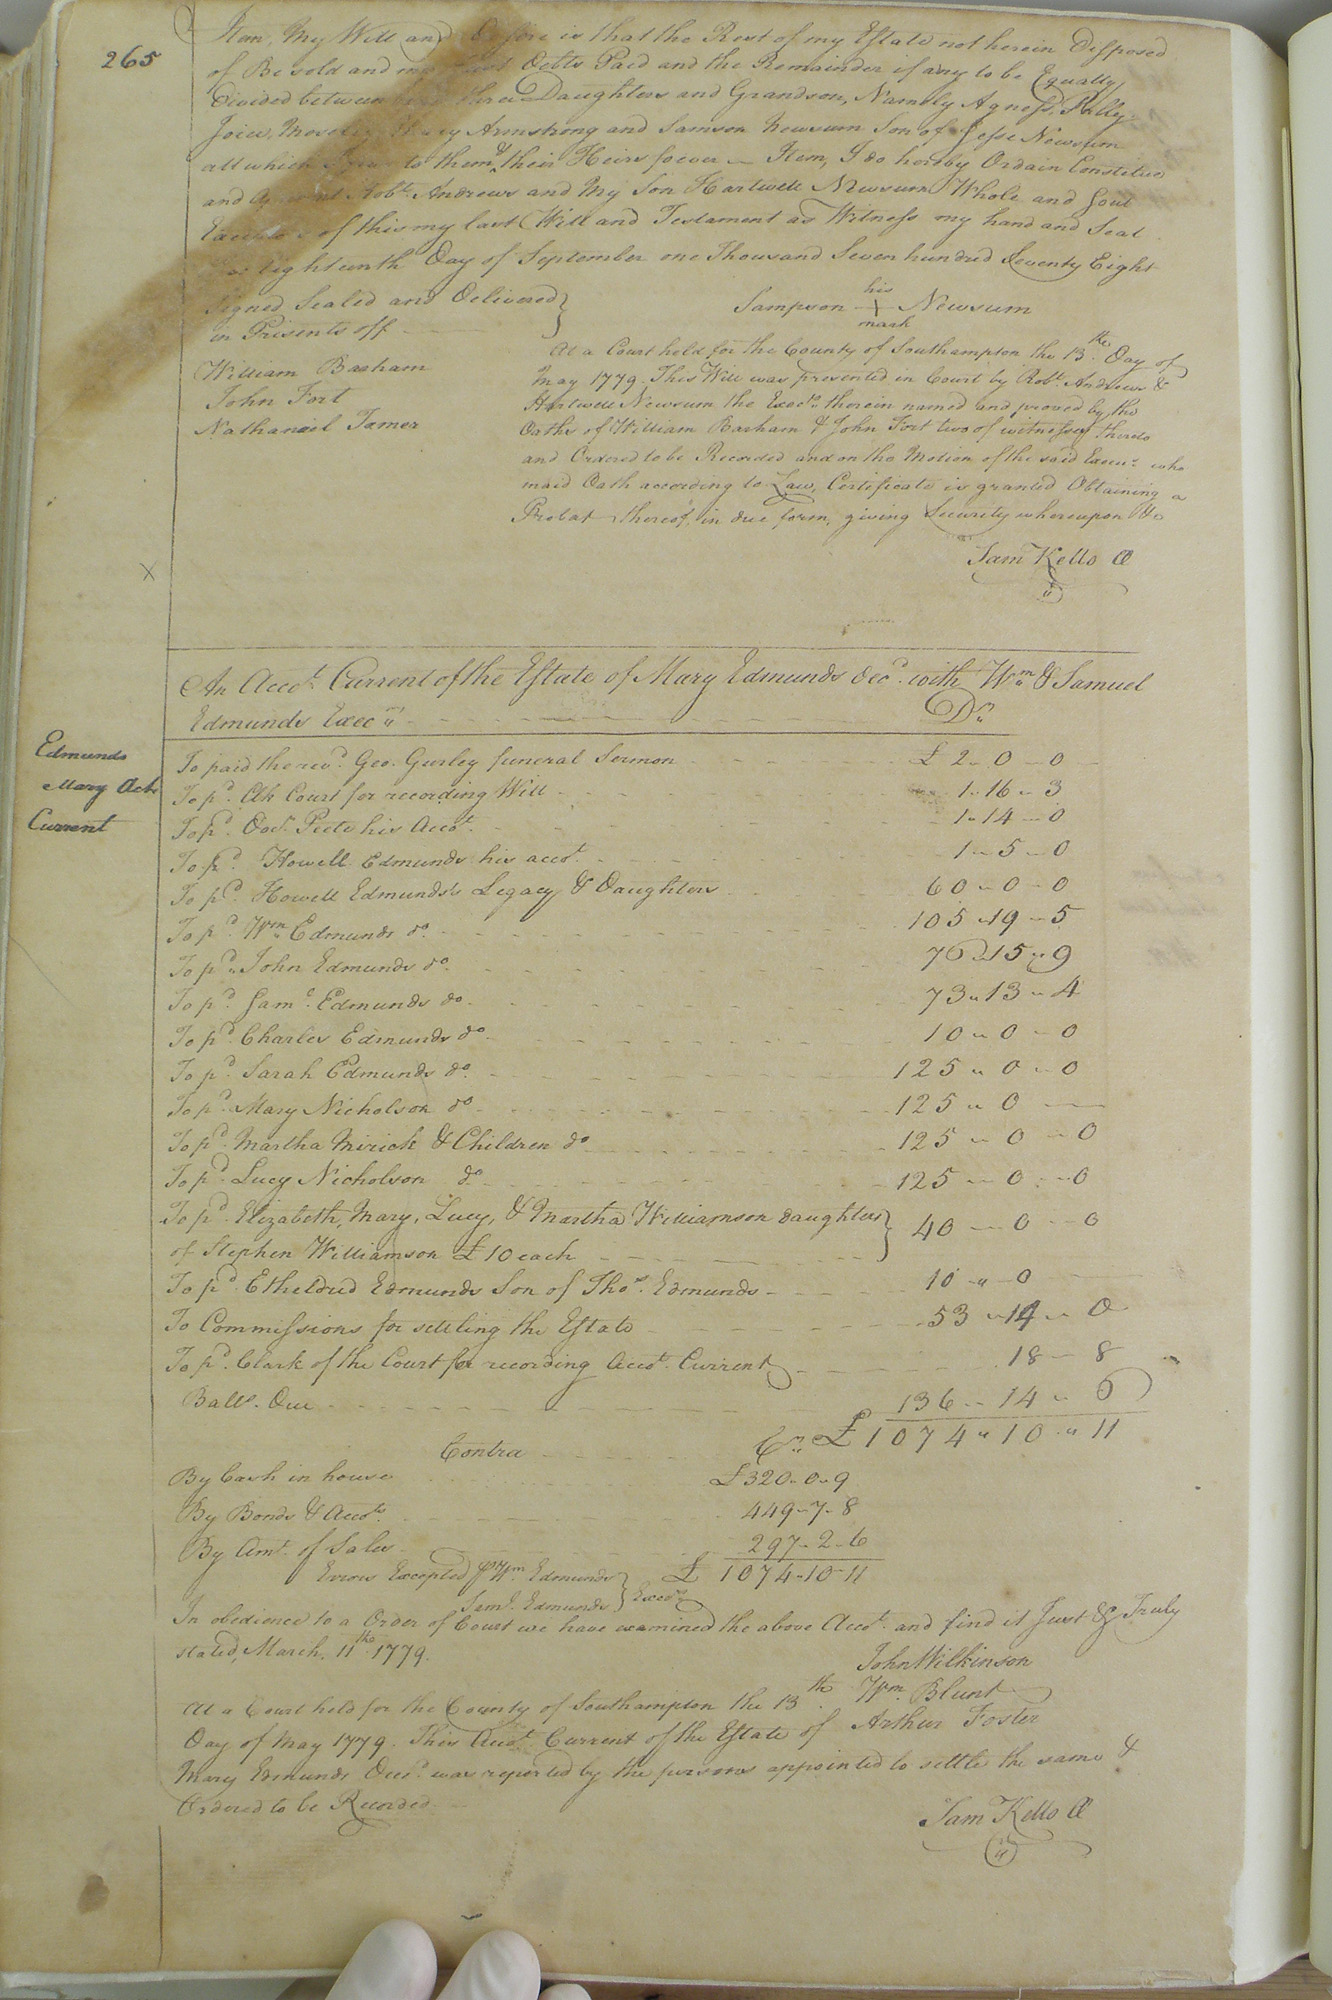 265
Item, My Will and Desire is that the Rest of my Estate not herein Desposed
of Be sold and my Just Debts Paid and the Remainder if any to be Equally
Divided between three Daughters and Grandson, Namely Agness, Sally
Joice, Moseley, Mary Armstrong and Samson Newsum Son of Jesse Newsum
all which I give to them & their Heirs forever Item, I do hereby Ordain Constitue
and Appoint Robt. Andrews and My Son Hartwell Newsum Whole and Soul
Executors of this my last Will and Testament as Witness my hand and Seal
eighteenth Day of September one Thousand Seven hundred Seventy Eight
Signed Sealed and Delivered
in Presents off
his
Sampson + Newsum
mark
William Barham
John Fort
Nathanail Tamer
At a Court held for the County of Southampton the 13th Day of
May 1779. This Will was presented in Court by Robt. Andrews &
Hartwell Newsum the Execrs. therein named and proved by the
Oaths of William Barham & John Fort two of witnesses thereto
and Ordered to be Recorded and on the Motion of the said Execrs. who
maid Oath according to Law, Certificate is granted Obtaining a
Probat thereof, in due form, giving Security whereupon &c
Sam Kello Cl
x
An Accot. Current of the Estate of Mary Edmunds decd. with Wm & Samuel
Edmunds Execrs. Dr.
Edmunds
Mary Act
Current
To paid the revd. Geo. Gurley funeral Sermon £ 2 - 0 - 0
To pd. Clk Court for recording Will 1 - 16 - 3
To pd. Doct. Peete his Accot. 1 - 14 - 0
To pd. Howell Edmunds his accot. 1 - 5 - 0
To pd. Howell Edmunds's Legacy & Daughters 60 - 0 - 0
To pd. Wm. Edmunds do. 105 - 19 - 5
To pd. John Edmunds do. 76 - 15 - 9
To pd. Saml. Edmunds do. 73 - 13 - 4
To pd. Charles Edmunds do 10 - 0 - 0
To pd. Sarah Edmunds do. 125 - 0 - 0
To pd. Mary Nicholson do 125 - 0 -
To pd. Martha Mirick & Children do 125 - 0 - 0
To pd. Lucy Nicholson do 125 - 0 - 0
To pd. Elizabeth, Mary, Lucy, & Martha Williamson daughters
of Stephen Williamson £10 each 40 - 0 - 0
To pd. Etheldred Edmunds Son of Thos. Edmunds 10 - 0
To Commissions for settling the Estate 53 - 14 - 0
To pd. Clark of the Court for recording Accot. Current 18 - 8
Balle. Due 136 - 14 - 6
£ 1074 - 10 - 11
Contra Cr.
By Cash in house £320 - 0 - 9
By Bonds & Accots. 449 - 7 - 8
By Amt. of Sales 297 - 2 - 6
£ 1074 - 10 - 11
Errors Excepted pr Wm. Edmunds
Saml. Edmunds Execrs
In obedience to a Order of Court we have examined the above Accot. and find it Just & Truly
stated, March. 11th 1779.
John Wilkinson
Wm. Blunt
Arthur Foster
At a Court held for the County of Southampton the 13th
Day of May 1779. This Accot. Current of the Estate of
Mary Edmunds Decd. was reported by the persons appointed to settle the same &
Ordered to be Recorded
Sam Kello Cl